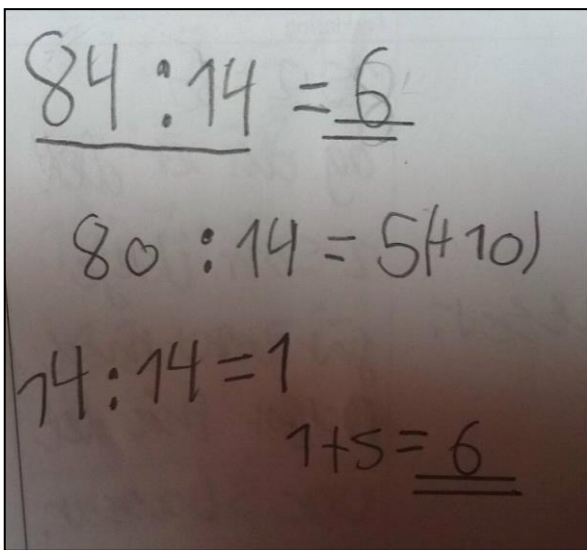 84 : 14 = 6
80 : 14 = 5(+10)
14 : 14 = 1
1+5 = 6